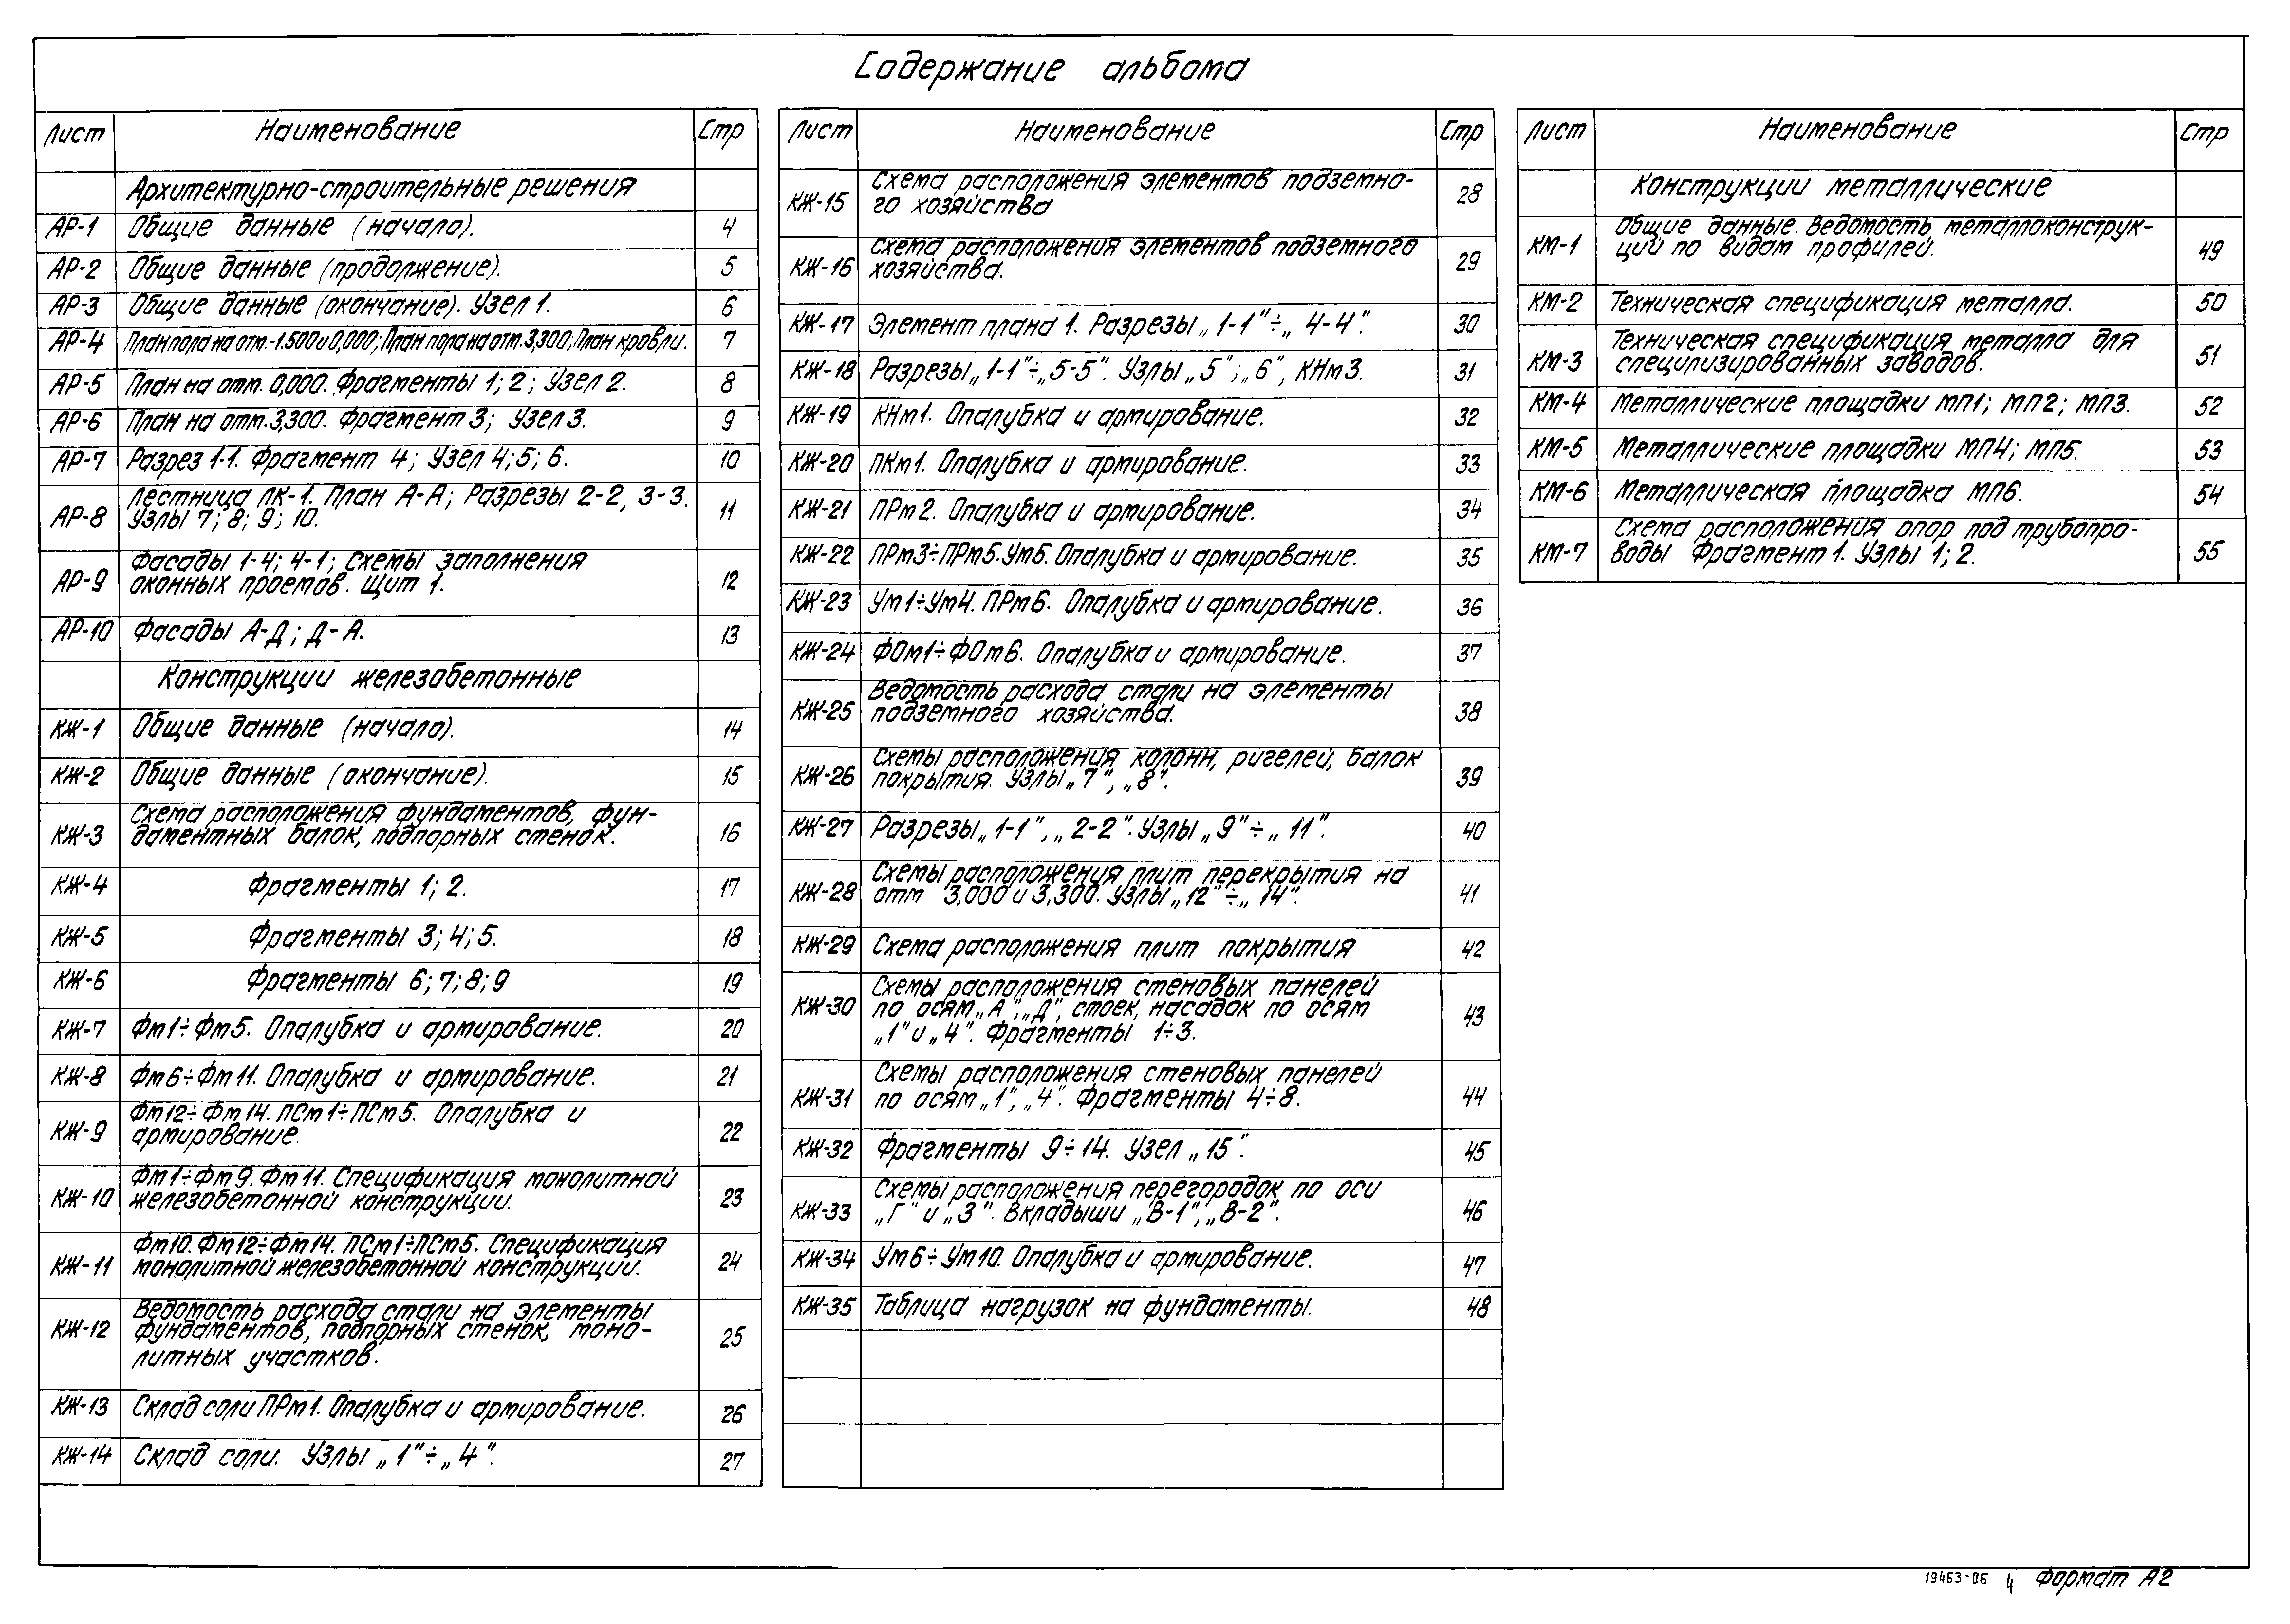 Содержание альбома
Лист Наименование Стр
Архитектурно-строительные решения
АР-1 Общие данные (начало). 4
АР-2 Общие данные (продолжение). 5
АР-3 Общие данные (окончание). Узел 1. 6
АР-4 План пола на отм.-1.500 и 0,000; План пола на отм. 3,300; План кровли. 7
АР-5 План на отм. 0,000. Фрагменты 1; 2; Узел 2. 8
АР-6 План на отм. 3,300. Фрагмент 3; Узел 3. 9
АР-7 Разрез 1-1. Фрагмент 4; Узел 4; 5; 6. 10
АР-8 Лестница ЛК-1. План А-А; Разрезы 2-2, 3-3.
Узлы 7; 8; 9; 10. 11
АР-9 Фасады 1-4; 4-1; Схемы заполнения
оконных проемов. Щит 1. 12
АР-10 Фасады А-Д; Д-А. 13
Конструкции железобетонные
КЖ-1 Общие данные (начало). 14
КЖ-2 Общие данные (окончание). 15
КЖ-3 Схема расположения фундаментов, фун-
даментных балок, подпорных стенок. 16
КЖ-4 Фрагменты 1; 2. 17
КЖ-5 Фрагменты 3; 4; 5. 18
КЖ-6 Фрагменты 6; 7; 8; 9 19
КЖ-7 Фм1÷Фм5. Опалубка и армирование. 20
КЖ-8 Фм6÷Фм11. Опалубка и армирование. 21
КЖ-9 Фм12÷Фм14. ПСм1÷ПСм5. Опалубка и
армирование. 22
КЖ-10 Фм1÷Фм9. Фм11. Спецификация монолитной
железобетонной конструкции. 23
КЖ-11 Фм10. Фм12÷Фм14. ПСм1÷ПСм5. Спецификация
монолитной железобетонной конструкции. 24
КЖ-12 Ведомость расхода стали на элементы
фундаментов, подпорных стенок, моно-
литных участков. 25
КЖ-13 Склад соли ПРм1. Опалубка и армирование. 26
КЖ-14 Склад соли. Узлы „1"÷„4". 27
Лист Наименование Стр
КЖ-15 Схема расположения элементов подземно-
го хозяйства 28
КЖ-16 Схема расположения элементов подземного
хозяйства. 29
КЖ-17 Элемент плана 1. Разрезы „1-1"÷„4-4". 30
КЖ-18 Разрезы „1-1"÷„5-5". Узлы „5"; „6", КНм3. 31
КЖ-19 КНм1. Опалубка и армирование. 32
КЖ-20 ПКм1. Опалубка и армирование. 33
КЖ-21 ПРм2. Опалубка и армирование. 34
КЖ-22 ПРм3÷ПРм5. Ум5. Опалубка и армирование. 35
КЖ-23 Ум1÷Ум4. ПРм6. Опалубка и армирование. 36
КЖ-24 ФОм1÷ФОм6. Опалубка и армирование. 37
КЖ-25 Ведомость расхода стали на элементы
подземного хозяйства. 38
КЖ-26 Схемы расположения колонн, ригелей, балок
покрытия. Узлы „7", „8". 39
КЖ-27 Разрезы „1-1", „2-2". Узлы „9"÷„11". 40
КЖ-28 Схемы расположения плит перекрытия на
отм 3,000 и 3,300. Узлы „12"÷„14". 41
КЖ-29 Схема расположения плит покрытия 42
КЖ-30 Схемы расположения стеновых панелей
по осям „А", „Д", стоек, насадок по осям
„1" и „4". Фрагменты 1÷3. 43
КЖ-31 Схемы расположения стеновых панелей
по осям „1", „4". Фрагменты 4÷8. 44
КЖ-32 Фрагменты 9÷14. Узел „15". 45
КЖ-33 Схемы расположения перегородок по оси
„Г" и „3". Вкладыши „В-1", „В-2". 46
КЖ-34 Ум6÷Ум10. Опалубка и армирование. 47
КЖ-35 Таблица нагрузок на фундаменты. 48
Лист Наименование Стр
Конструкции металлические
КМ-1 Общие данные. Ведомость металлоконструк-
ций по видам профилей. 49
КМ-2 Техническая спецификация металла. 50
КМ-3 Техническая спецификация металла для
специлизированных заводов. 51
КМ-4 Металлические площадки МП1; МП2; МП3. 52
КМ-5 Металлические площадки МП4; МП5. 53
КМ-6 Металлическая площадка МП6. 54
КМ-7 Схема расположения опор под трубопро-
воды Фрагмент 1. Узлы 1; 2. 55
19463-06 4 Формат А2